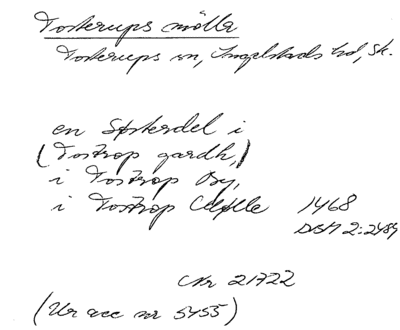 Tosterups mölla
Tosterups sn, Ingelstads hd, Sk.
en Søsterdel i
(Tostrop gardh,)
i Tostrop By,
i Tostrop Mølle 1468
DSM 2:2489
Nr 21722
(Ur acc nr 5455)